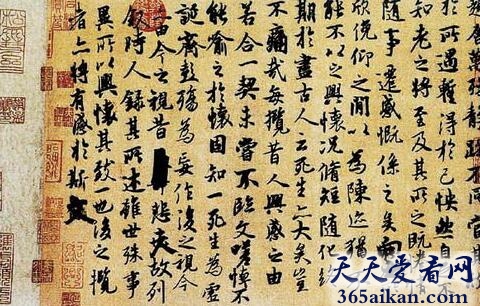 舍萬殊靜躁不同當其
於所遇蹔得於己怏然自
知老之將至及其所之既
隨事遷感慨係之矣向
欣俛仰之閒以為陳迹猶
能不以之興懷況脩短隨化終
期於盡古人云死生亦大矣豈
不痛哉每攬昔人興感之由
若合一契未嘗不臨文嗟悼不
能喻之於懷固知一死生為虛
誕齊彭殤為妄作後之視今
亦由今之視昔悲夫故列
敘時人錄其所述雖世殊事
異所以興懷其致一也後之攬
者亦將有感於斯文
天天爱看网
365aikan.com